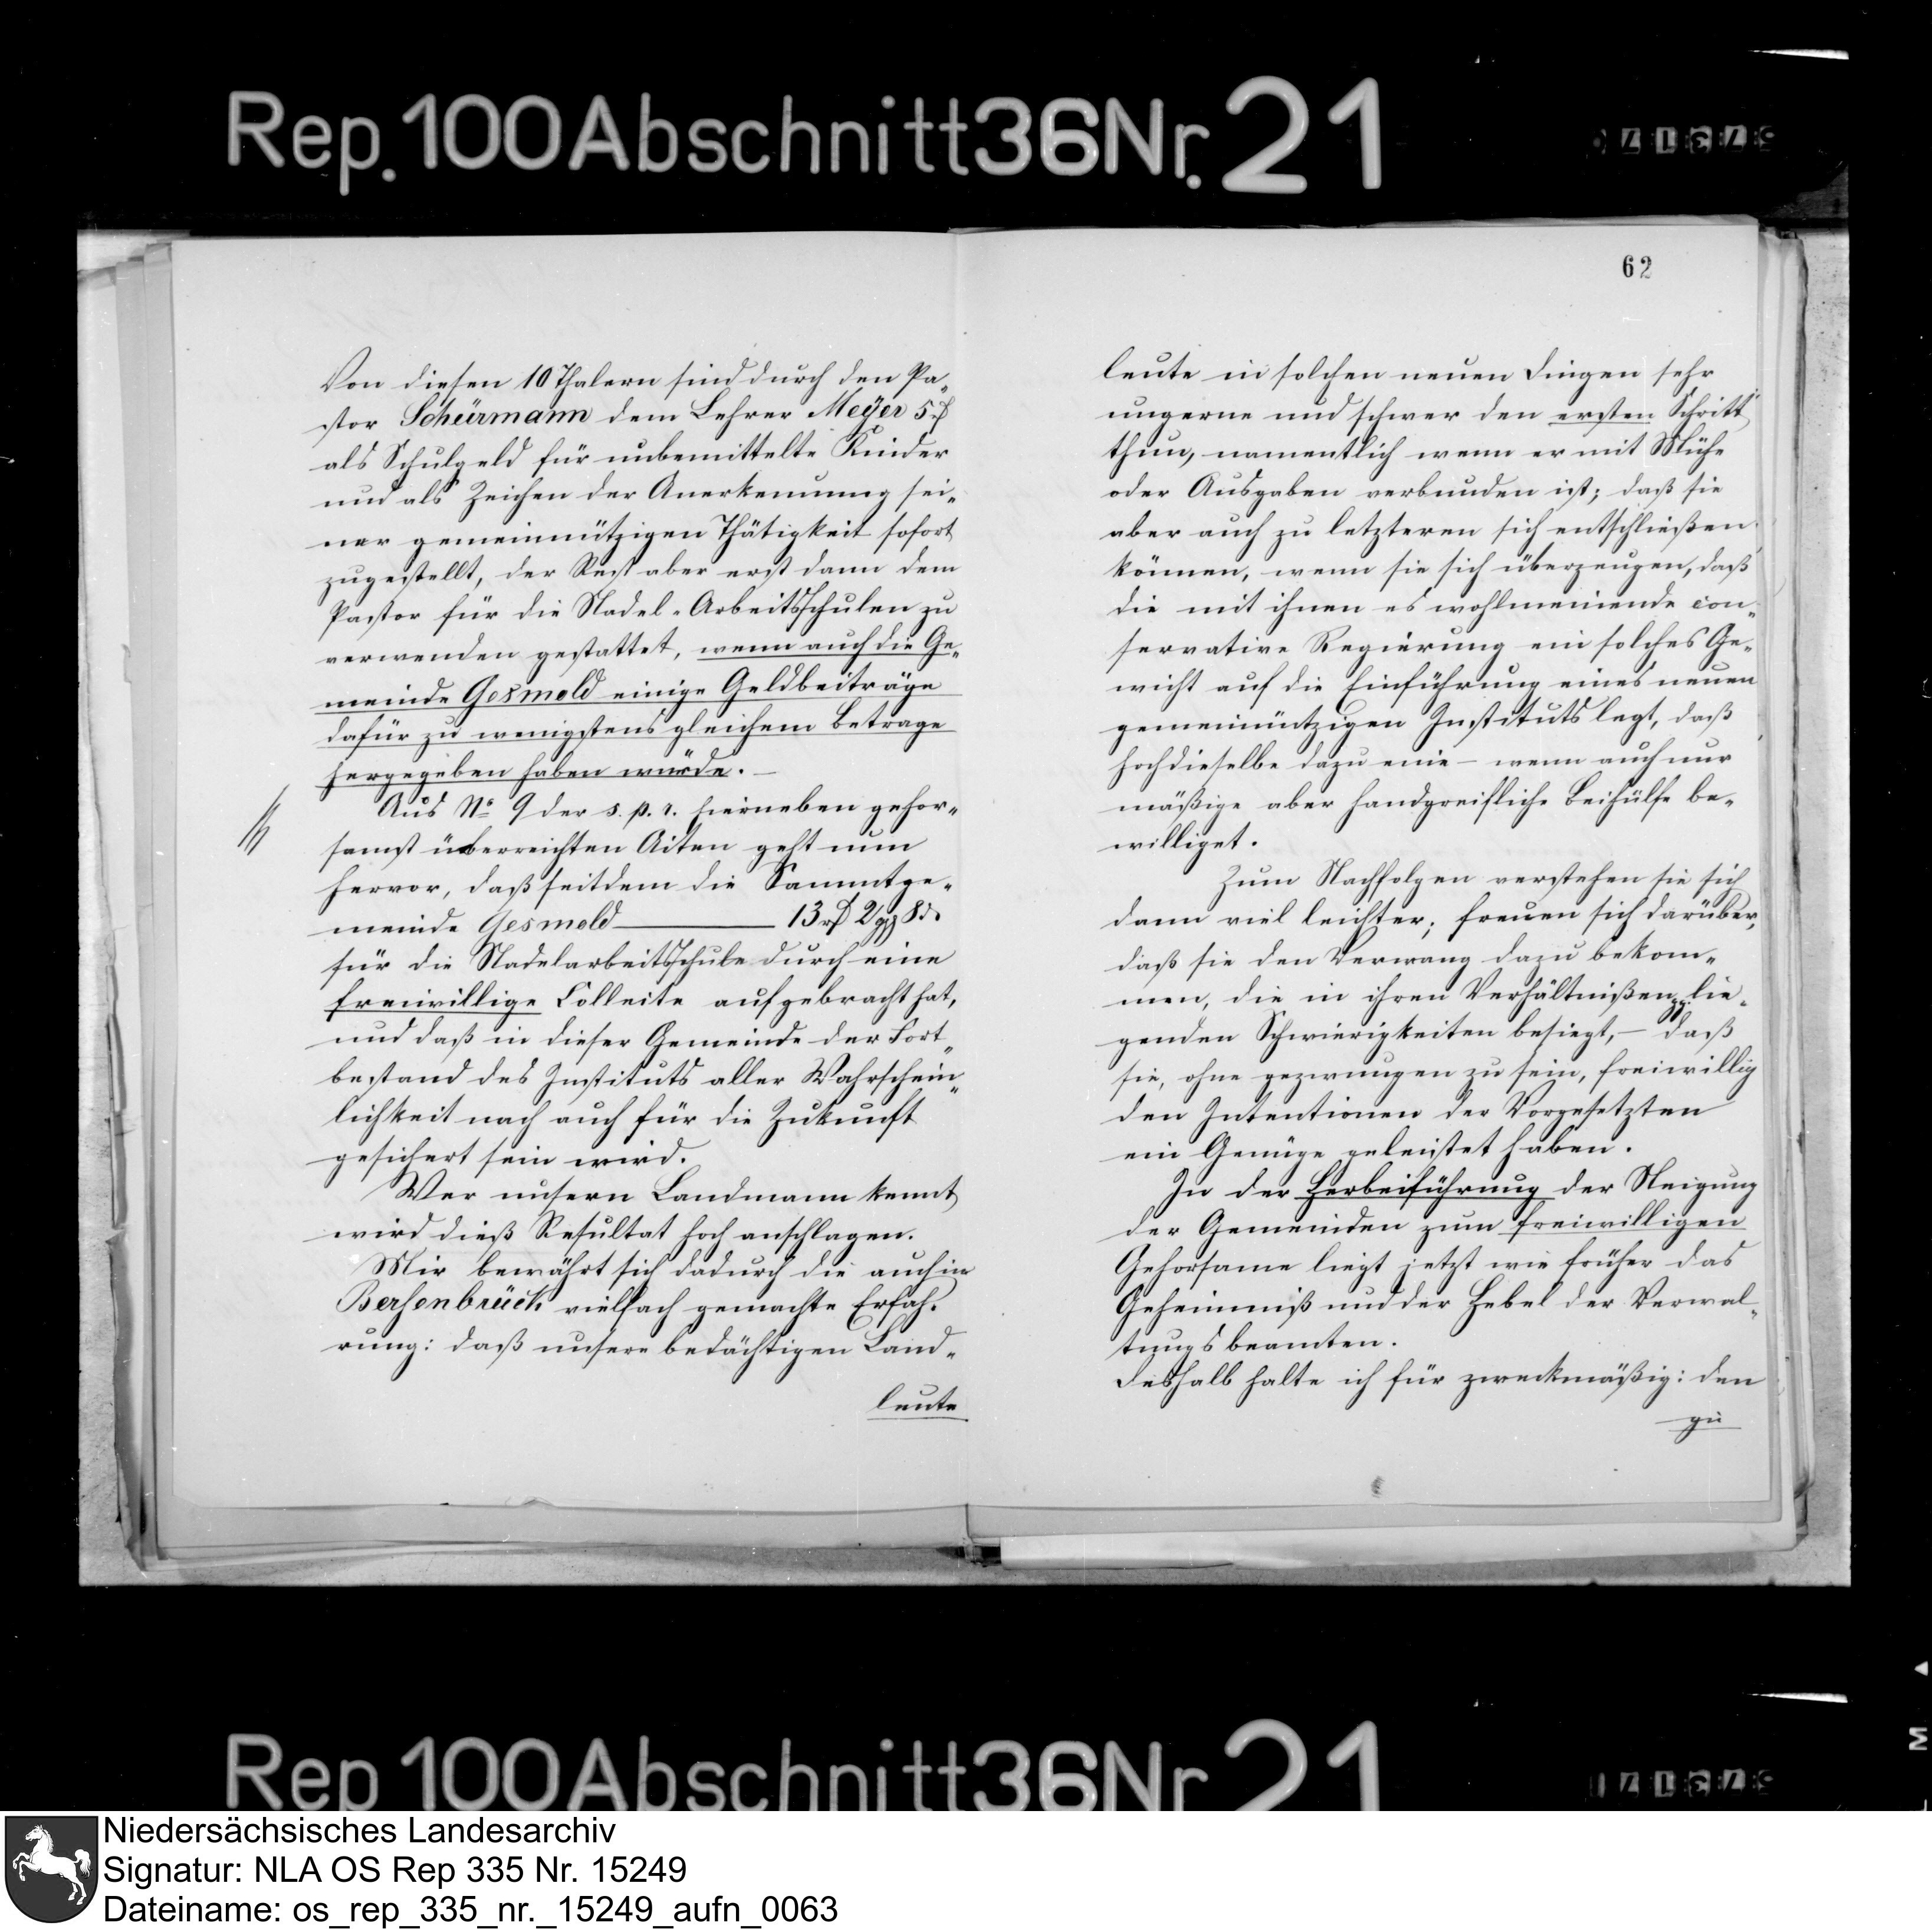 Rep. 100 Abschnitt 36 Nr. 21
62
Von diesen 10 Thalern sind durch den Pa-
stor Schürmann dem Lehrer Meyer 5 rℓ
als Schulgeld für unbemittelte Kinder
und als Zeichen der Anerkennung sei-
ner gemeinnützigen Thätigkeit sofort
zugestellt, der Rest aber erst dann dem
Pastor für die Nadel-Arbeitsschulen zu
verwenden gestattet, wenn auch die Ge-
meinde Gesmold einige Geldbeiträge
dafür zu wenigstens gleichem Betrage
hergegeben haben würde. —
Aus No 9 der s. p. r. hierneben gehor-
samst überreichten Acten geht nun
hervor, daß seitdem die Sammtge-
meinde Gesmold — 13 rℓ 2 ggr 8 d.
für die Nadelarbeitsschule durch eine
freiwillige Collecte aufgebracht hat,
und daß in dieser Gemeinde der Fort-
bestand des Instituts aller Wahrschein-
lichkeit nach auch für die Zukunft
gesichert sein wird.
Wer unsern Landmann kennt
wird dieß Resultat hoch anschlagen.
Mir bewährt sich dadurch die auch in
Bersenbrück vielfach gemachte Erfah-
rung: daß unsere bedächtigen Land-
leute
leute in solchen neuen Dingen sehr
ungerne und schwer den ersten Schritt
thun, namentlich wenn er mit Mühe
oder Ausgaben verbunden ist; daß sie
aber auch zu letzteren sich entschließen
können, wenn sie sich überzeugen, daß
die mit ihnen es wohlmeinende con-
servative Regierung ein solches Ge-
wicht auf die Einführung eines neuen
gemeinnützigen Instituts legt, daß
hochdieselbe dazu eine — wenn auch nur
mäßige aber handgreifliche Beihülfe be-
williget.
Zum Nachfolgen verstehen sie sich
dann viel leichter; freuen sich darüber,
daß sie den Vorwang dazu bekom-
men, die in ihren Verhältnißen lie-
genden Schwierigkeiten besiegt, — daß
sie, ohne gezwungen zu sein, freiwillig
den Intentionen der Vorgesetzten
ein Genüge geleistet haben.
In der Herbeiführung der Neigung
der Gemeinden zum freiwilligen
Gehorsame liegt jetzt wie früher das
Geheimniß und der Hebel der Verwal-
tungsbeamten.
Deshalb halte ich für zweckmäßig: den
gü
Rep 100 Abschnitt 36 Nr 21
Niedersächsisches Landesarchiv
Signatur: NLA OS Rep 335 Nr. 15249
Dateiname: os_rep_335_nr._15249_aufn_0063